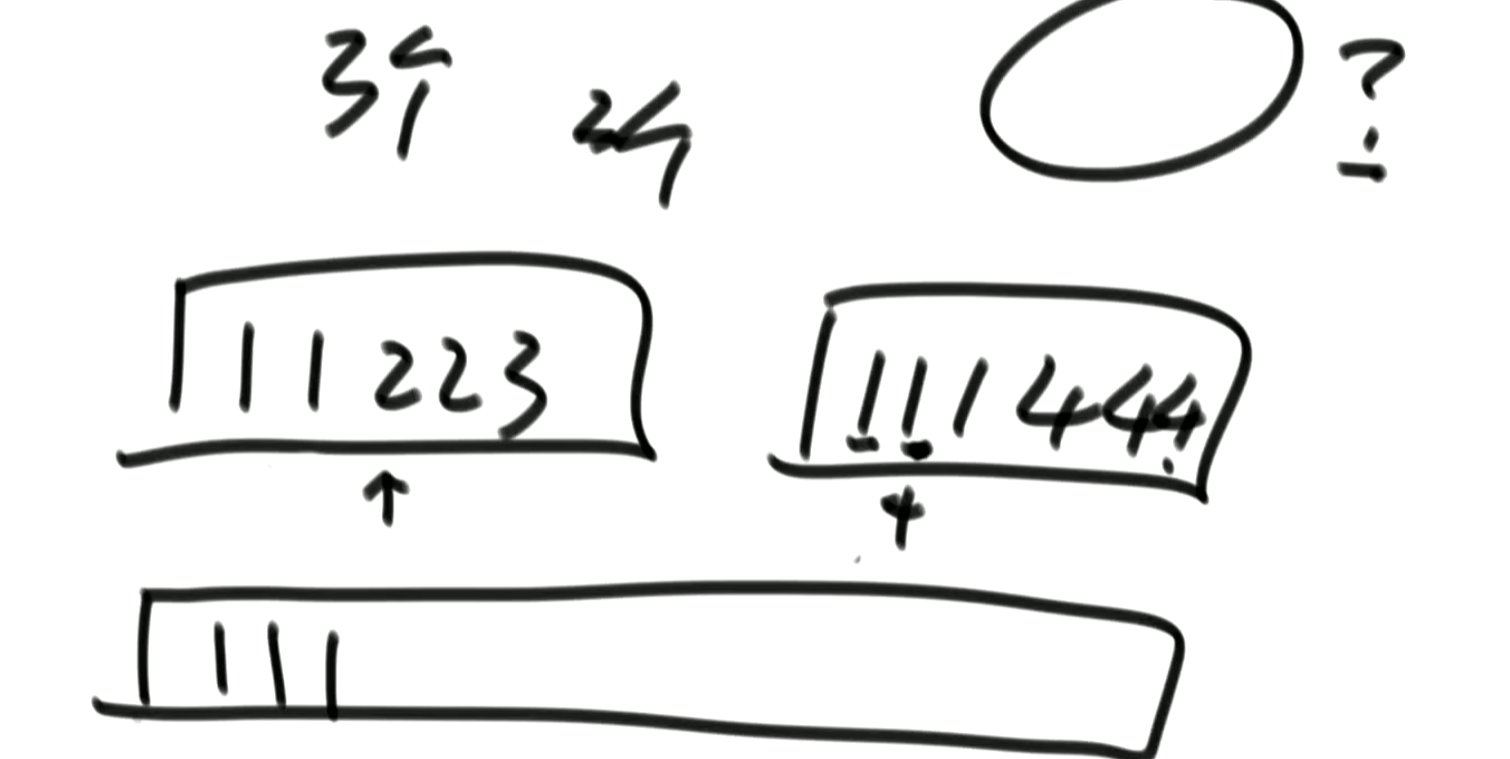 39 24 ?
11223
111444
111